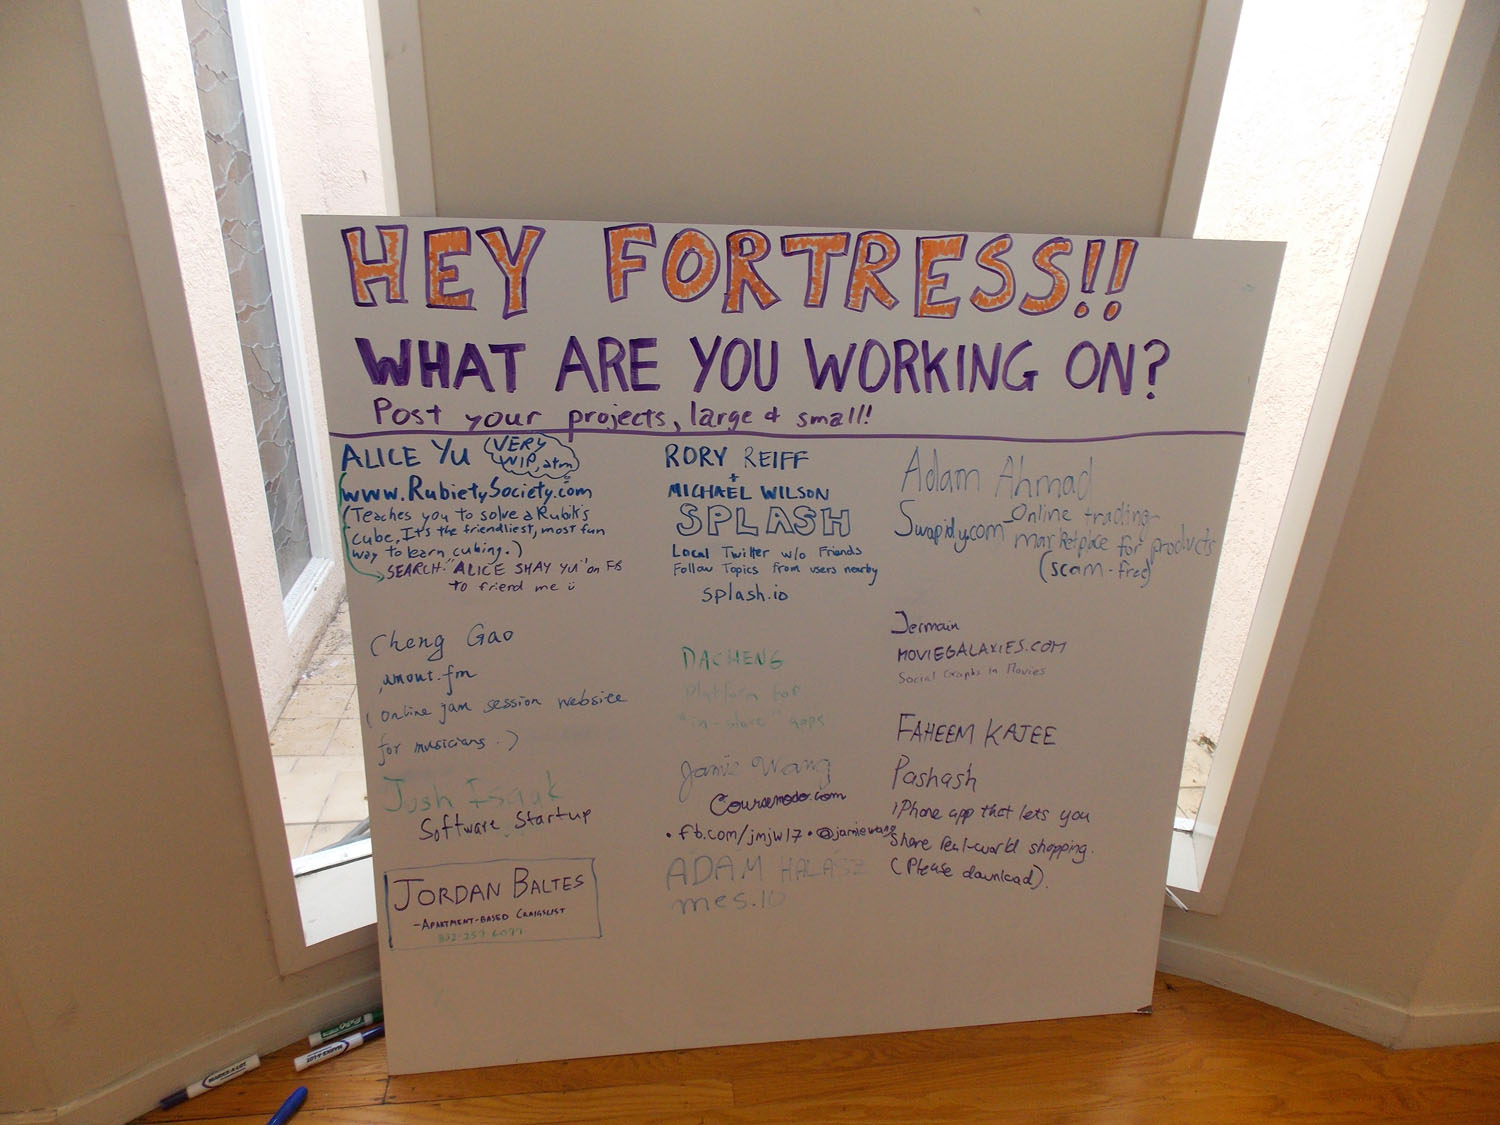 HEY FORTRESS!!
WHAT ARE YOU WORKING ON?
Post your projects, large & small!
ALICE YU
VERY
WIP, atm
www.RubietySociety.com
(Teaches you to solve a Rubik's
cube. It's the friendliest, most fun
way to learn cubing.)
SEARCH "ALICE SHAY YU" on FB
to friend me ü
Cheng Gao
(online jam session website
for musicians.)
Josh Isaak
Software Startup
JORDAN BALTES
-APARTMENT-BASED CRAIGSLIST
RORY REIFF
+
MICHAEL WILSON
SPLASH
Local Twitter w/o Friends
Follow Topics from users nearby
splash.io
DACHENG
Platform for
"in-store" apps
Jamie Wang
Coursemodo.com
• fb.com/jmjw17 • @jamiewang
ADAM HALASZ
mes.io
Adam Ahmad
Swapidy.com - Online trading
marketplace for products
(scam-free)
Jermain
MOVIEGALAXIES.COM
Social Graphs in Movies
FAHEEM KAJEE
Pashash
iPhone app that lets you
share real-world shopping.
(Please download).